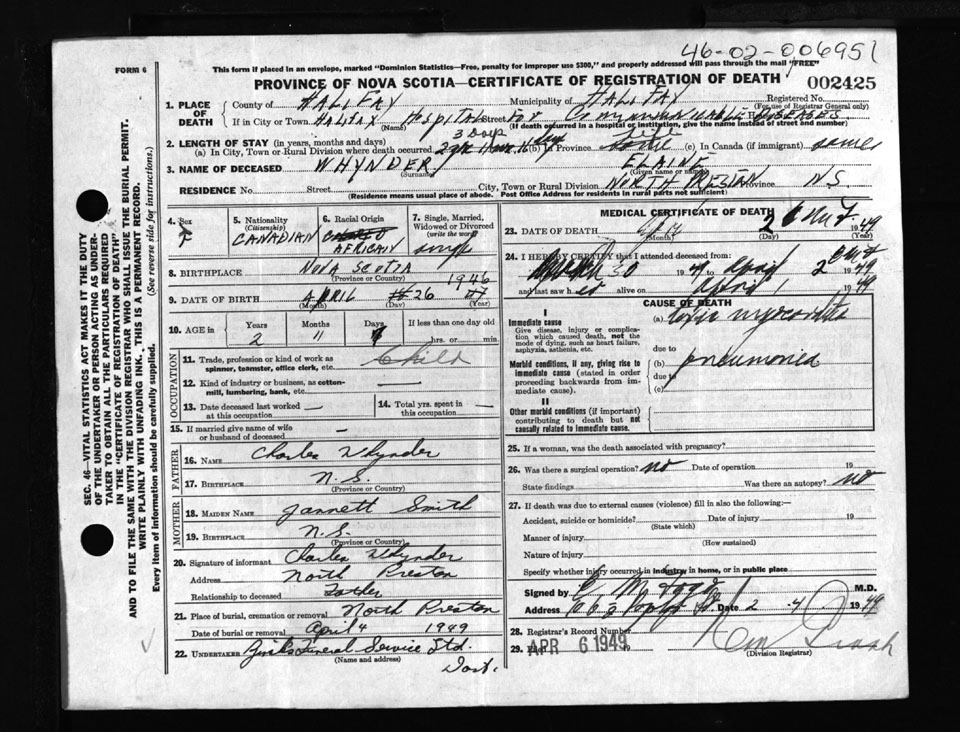 46-02-006951
FORM 6
This form if placed in an envelope, marked "Dominion Statistics—Free, penalty for improper use $300," and properly addressed will pass through the mail "FREE"
PROVINCE OF NOVA SCOTIA—CERTIFICATE OF REGISTRATION OF DEATH
002425
1. PLACE OF DEATH
County of HALIFAX Municipality of HALIFAX Registered No.
(For use of Registrar General only)
If in City or Town HALIFAX Hospital Street FOR COMMUNICABLE DISEASES
(Name) (If death occurred in a hospital or institution, give the name instead of street and number)
3 Days Life
2. LENGTH OF STAY (in years, months and days)
(a) In City, Town or Rural Division where death occurred (b) In Province (c) In Canada (if immigrant)
3. NAME OF DECEASED WHYNDER ELAINE
(Surname) (Given name or names)
RESIDENCE No. Street City, Town or Rural Division NORTH PRESTON Province N.S.
(Residence means usual place of abode. Post Office Address for residents in rural parts not sufficient)
4. Sex
F
5. Nationality
(Citizenship)
CANADIAN
6. Racial Origin
AFRICAN
7. Single, Married, Widowed or Divorced
(write the word)
single
8. BIRTHPLACE NOVA SCOTIA
(Province or Country)
1946
9. DATE OF BIRTH APRIL 26 47
(Month) (Day) (Year)
10. AGE in
Years Months Days If less than one day old
2 11 hrs. or min.
OCCUPATION
11. Trade, profession or kind of work as spinner, teamster, office clerk, etc. Child
12. Kind of industry or business, as cotton-mill, lumbering, bank, etc. —
13. Date deceased last worked at this occupation —
14. Total yrs. spent in this occupation —
15. If married give name of wife or husband of deceased —
FATHER
16. NAME Charles Whynder
17. BIRTHPLACE N.S.
(Province or Country)
MOTHER
18. MAIDEN NAME Jannett Smith
19. BIRTHPLACE N.S.
(Province or Country)
20. Signature of informant Charles Whynder
Address North Preston
Relationship to deceased Father
21. Place of burial, cremation or removal North Preston
Date of burial or removal April 4 1949
22. UNDERTAKER Funeral Service Ltd.
(Name and address)
Dart.
MEDICAL CERTIFICATE OF DEATH
23. DATE OF DEATH 2 1949
(Month) (Day) (Year)
24. I HEREBY CERTIFY that I attended deceased from:
March 30 1949 to April 2 1949
and last saw her alive on April 1 1949
CAUSE OF DEATH
I
Immediate cause
Give disease, injury or complication which caused death, not the mode of dying, such as heart failure, asphyxia, asthenia, etc.
(a) toxic myocarditis
due to
Morbid conditions, if any, giving rise to immediate cause (stated in order proceeding backwards from immediate cause).
(b) pneumonia
due to
(c)
II
Other morbid conditions (if important) contributing to death but not causally related to immediate cause.
25. If a woman, was the death associated with pregnancy?
26. Was there a surgical operation? no Date of operation 19
State findings Was there an autopsy? no
27. If death was due to external causes (violence) fill in also the following:—
Accident, suicide or homicide? Date of injury 19
(State which)
Manner of injury
(How sustained)
Nature of injury
Specify whether injury occurred in industry, in home, or in public place
Signed by M.D.
Address Date 2 4 1949
28. Registrar's Record Number
29. APR 6 1949
(Division Registrar)
SEC. 46—VITAL STATISTICS ACT MAKES IT THE DUTY
OF THE UNDERTAKER OR PERSON ACTING AS UNDER-
TAKER TO OBTAIN ALL THE PARTICULARS REQUIRED
IN THE "CERTIFICATE OF REGISTRATION OF DEATH"
AND TO FILE THE SAME WITH THE DIVISION REGISTRAR WHO SHALL ISSUE THE BURIAL PERMIT.
WRITE PLAINLY WITH UNFADING INK. THIS IS A PERMANENT RECORD.
Every item of information should be carefully supplied. (See reverse side for instructions.)